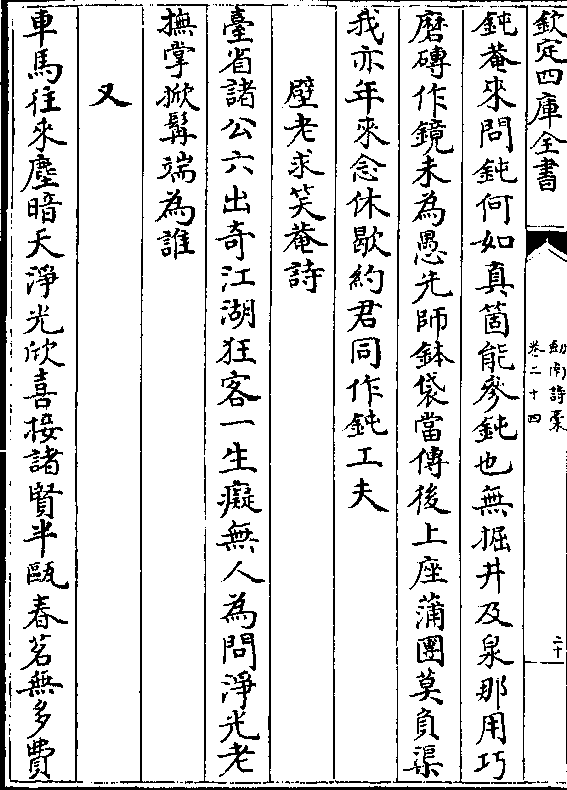 欽定四庫全書
劍南詩槀
卷二十四
二十
鈍菴來問鈍何如真箇能參鈍也無掘井及泉那用巧
磨磚作鏡未為愚先師鉢袋當傳後上座蒲團莫負渠
我亦年來念休歇約君同作鈍工夫
壁老求笑菴詩
臺省諸公六出奇江湖狂客一生癡無人為問淨光老
撫掌掀髯端為誰
又
車馬往來塵暗天淨光欣喜接諸賢半甌春茗無多費